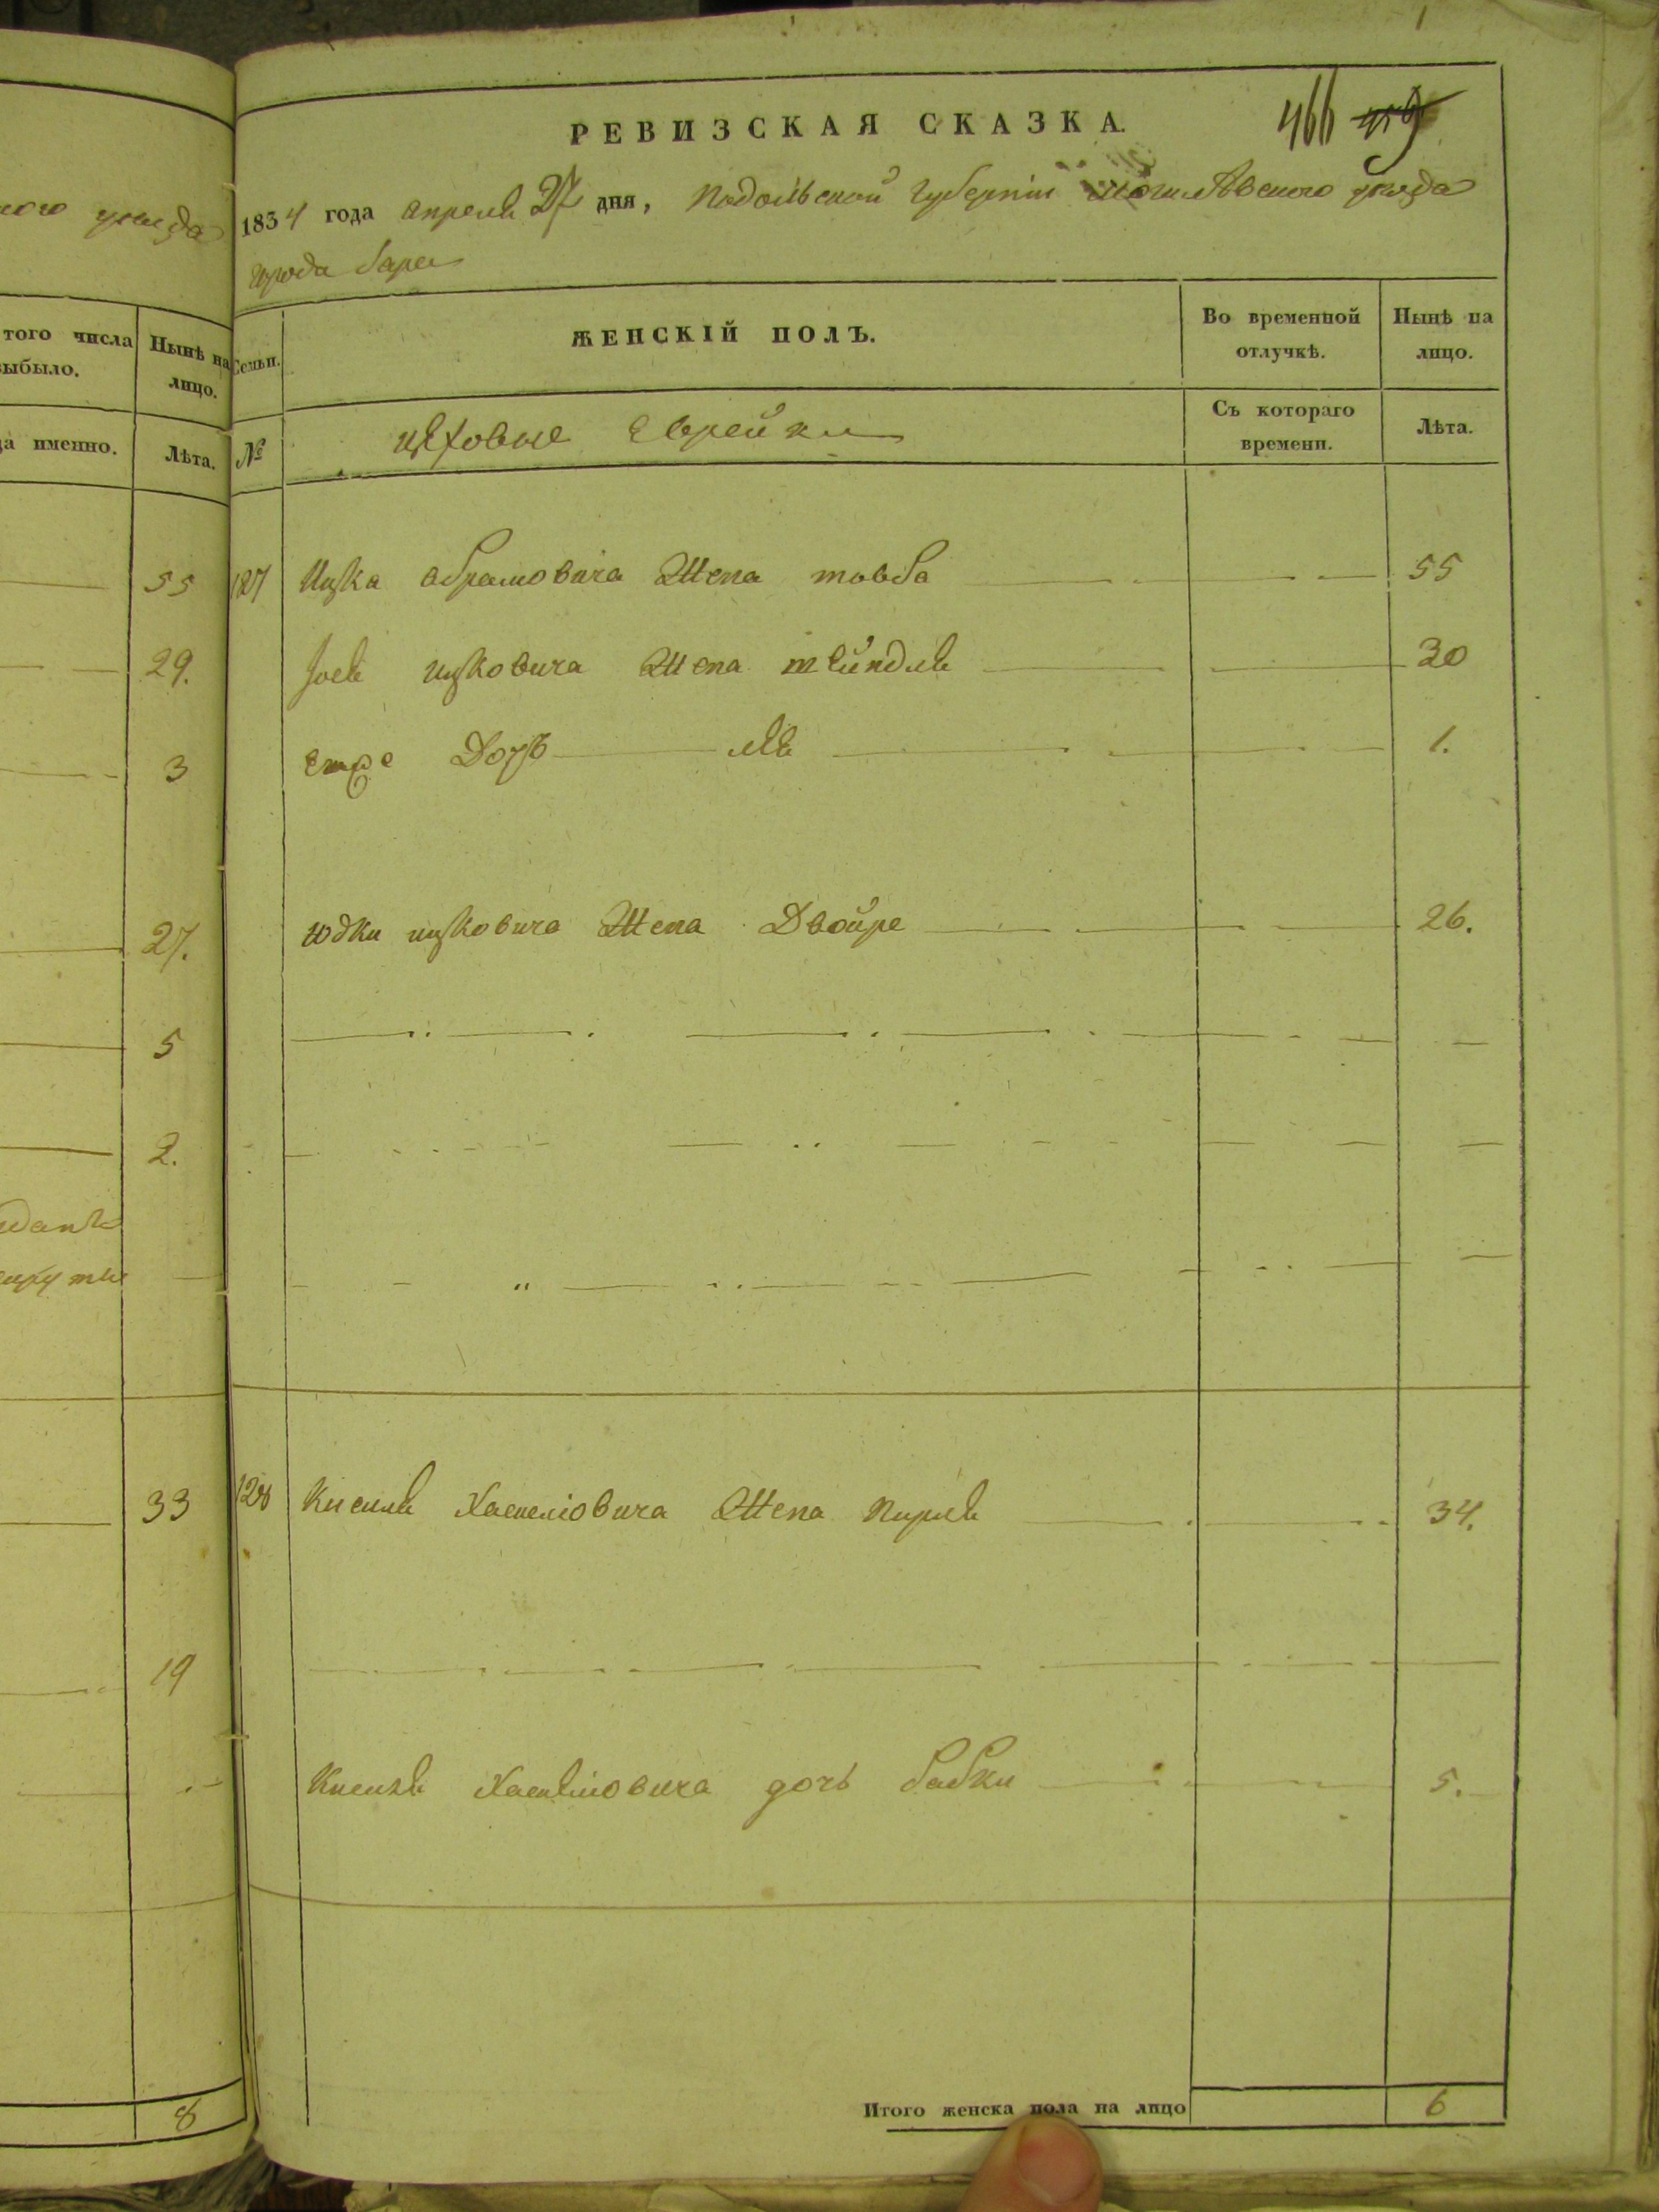 ного уезда
того числа
выбыло.
Нынѣ на
лицо.
да именно.
Лѣта.
55
29.
3
27.
5
2.
33
19
8
466
РЕВИЗСКАЯ СКАЗКА.
1834 года апреля 27 дня, Подольской Губернiи Могилѣвского уезда
города бара
Семьи.
ЖЕНСКІЙ ПОЛЪ.
Во временной
отлучкѣ.
Нынѣ на
лицо.
№
цѣховые Еврейки
Съ котораго
времени.
Лѣта.
127 Ицка абрамовича Жена товба 55
ицковича Жена шейндля 30
Дочь 1.
юдки ицковича Жена Двойре 26.
128 Кисиля Жена пирля 34.
Кисиля дочь бабки 5.
Итого женска пола на лицо 6